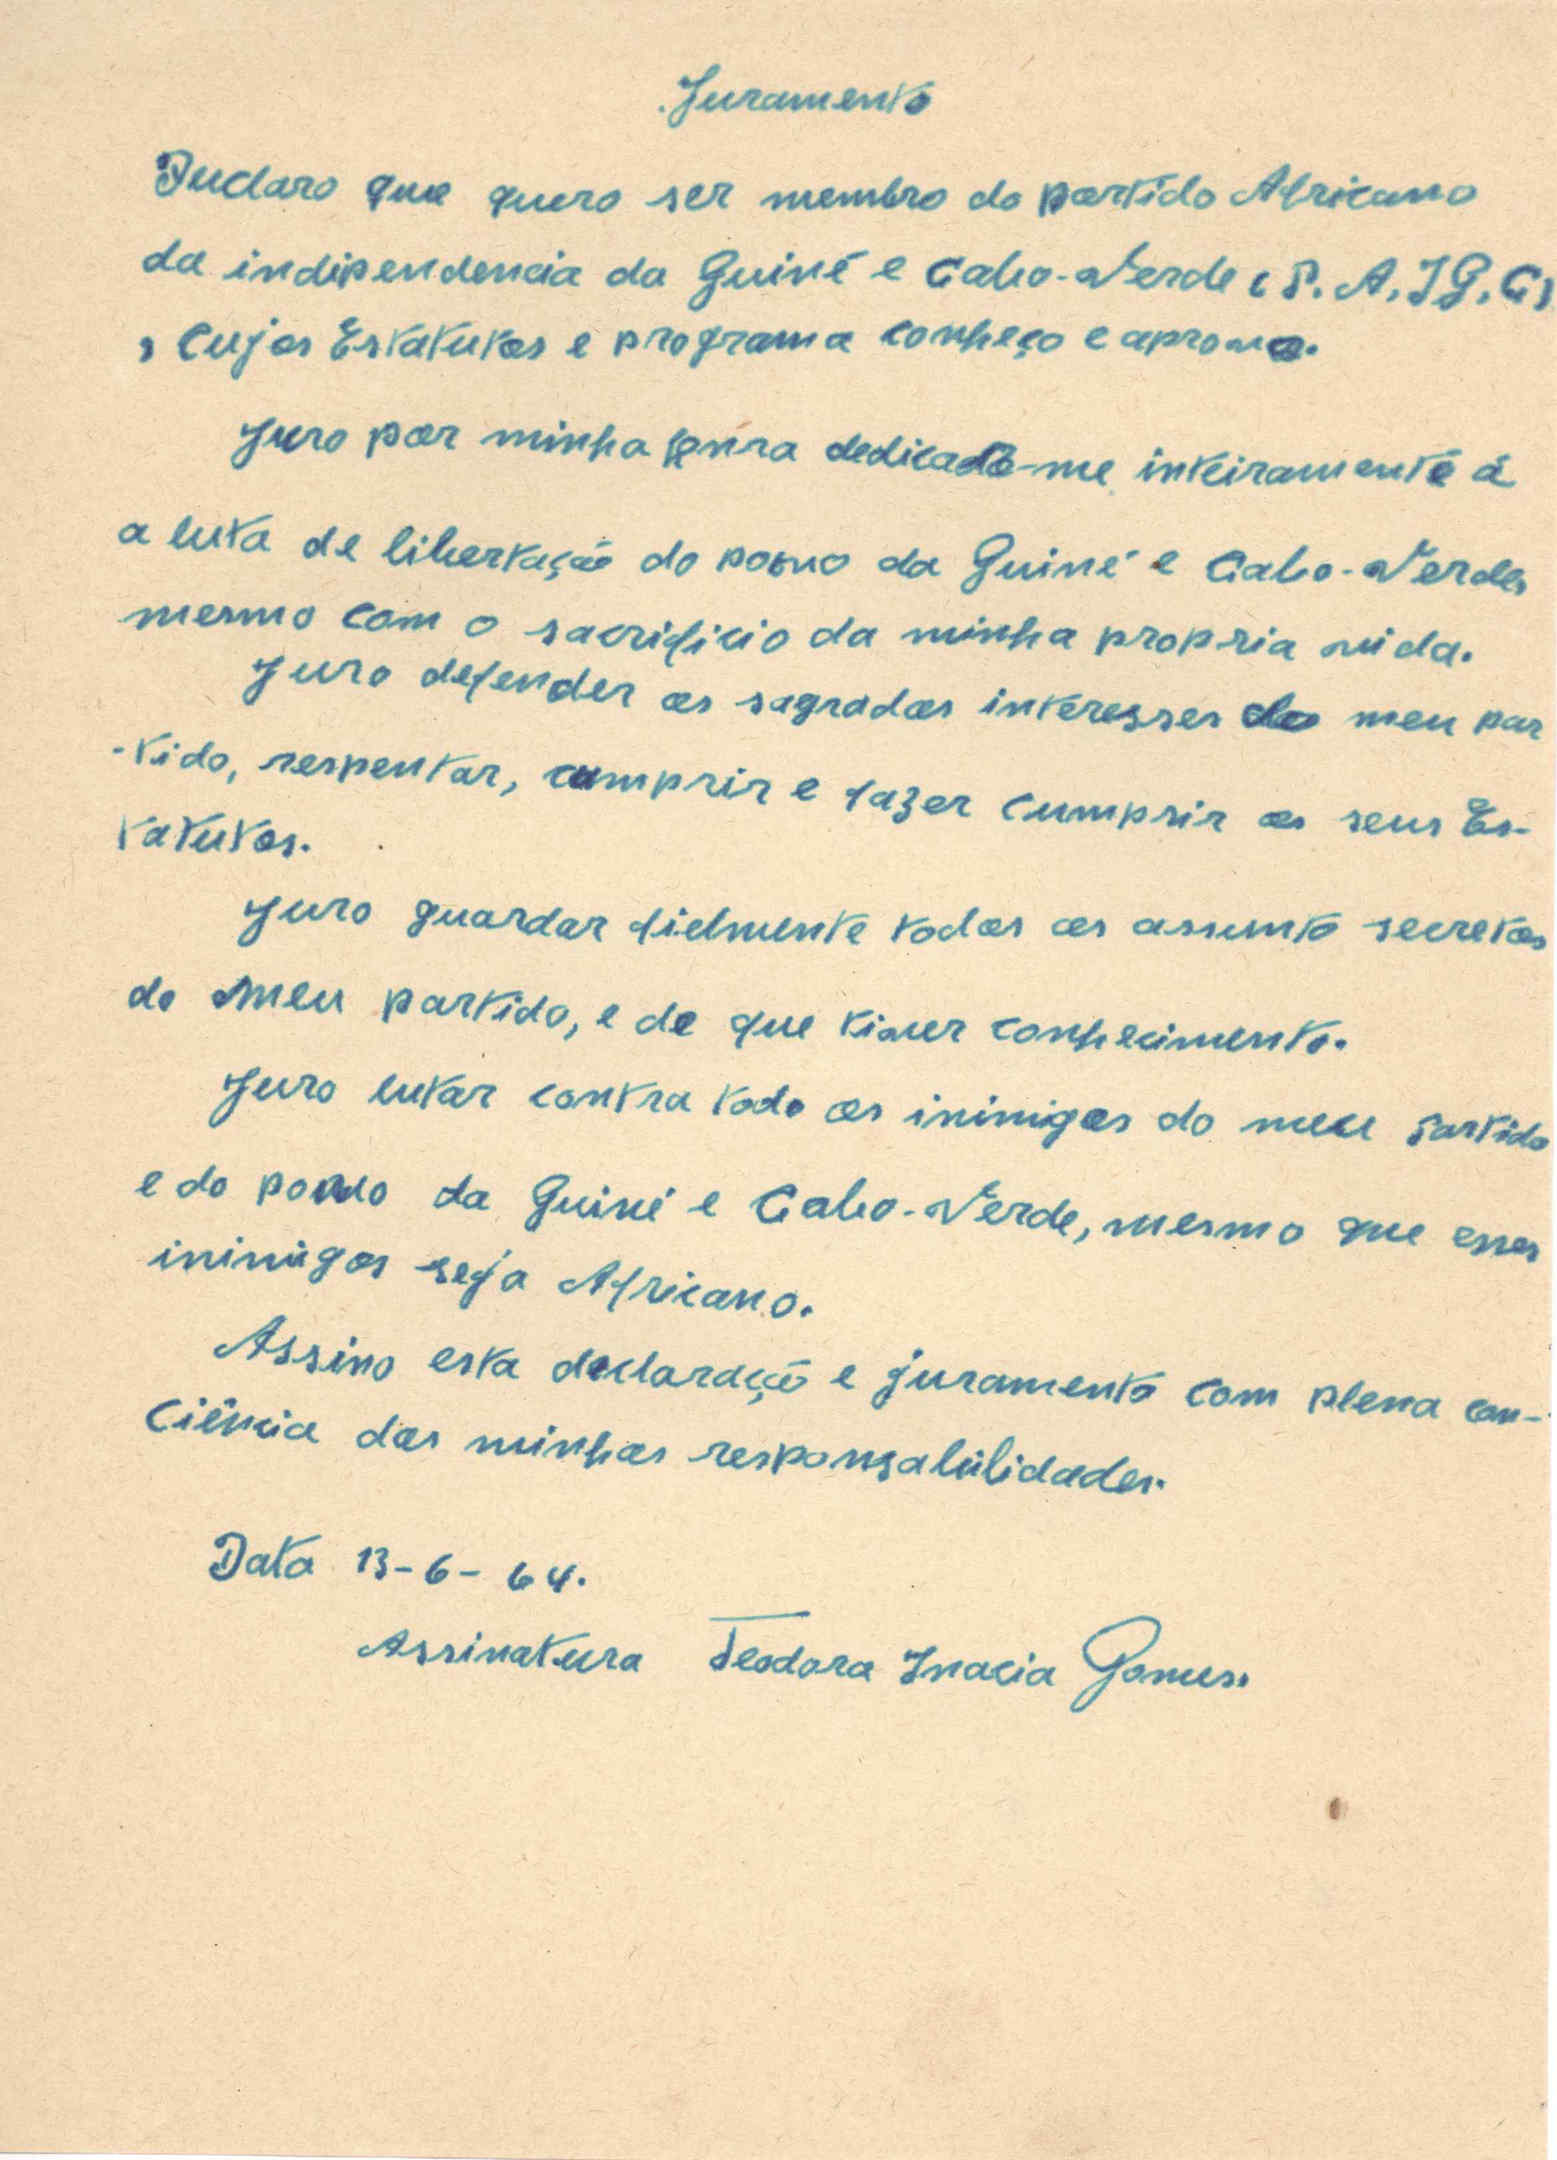 Juramento
Declaro que quero ser membro do partido Africano
da indipendencia da Guiné e Cabo-Verde (P.A.IG.C)
, cujos Estatutos e programa conheço e aprovo.
Juro por minha honra dedicado-me inteiramente á
a luta de libertação do povo da Guiné e Cabo-Verde,
mesmo com o sacrificio da minha propria vida.
Juro defender os sagrados interesses do meu par
-tido, respentar, cumprir e fazer cumprir os seus Es-
tatutos.
Juro guardar fielmente todos os assunto secretos
do meu partido, e de que tiver conhecimento.
Juro lutar contra todo os inimigos do meu Partido
e do povo da Guiné e Cabo-Verde, mesmo que esses
inimigos seja Africano.
Assino esta declaração e juramento com plena con-
ciência das minhas responsabilidades.
Data 13-6-64.
Assinatura Teodora Inacia Gomes.